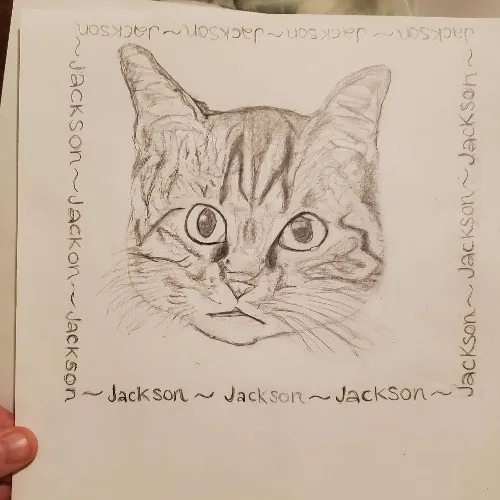 Jackson ~ Jackson ~ Jackson ~ Jackson ~ Jackson
~ Jackson ~ Jackon ~ Jackson
Jackson ~ Jackson ~ Jackson ~
~ Jackson ~ Jackson ~ Jackson ~